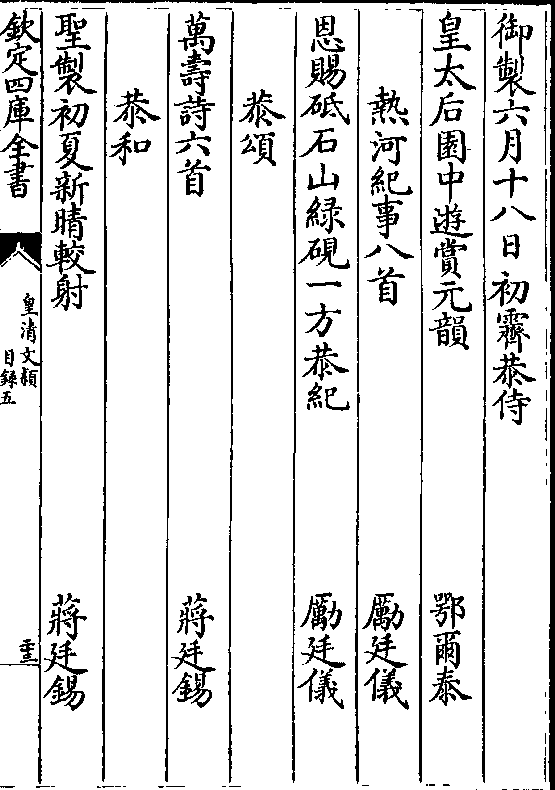 御製六月十八日初霽恭侍
皇太后園中遊賞元韻　鄂爾泰
熱河紀事八首　勵廷儀
恩賜砥石山緑硯一方恭紀　勵廷儀
恭頌
萬壽詩六首　蔣廷錫
恭和
聖製初夏新晴較射　蔣廷錫
欽定四庫全書
皇清文穎
目錄五